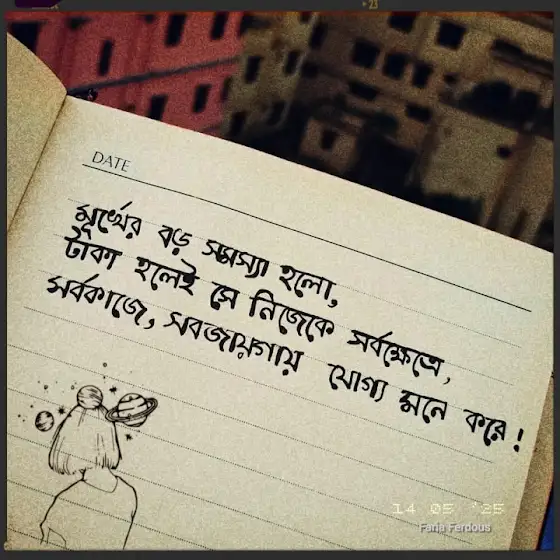 DATE
মূর্খের বড় সমস্যা হলো,
টাকা হলেই সে নিজেকে সর্বক্ষেত্রে,
সর্বকাজে, সবজায়গায় যোগ্য মনে করে!
14 05 '25
Faria Ferdous